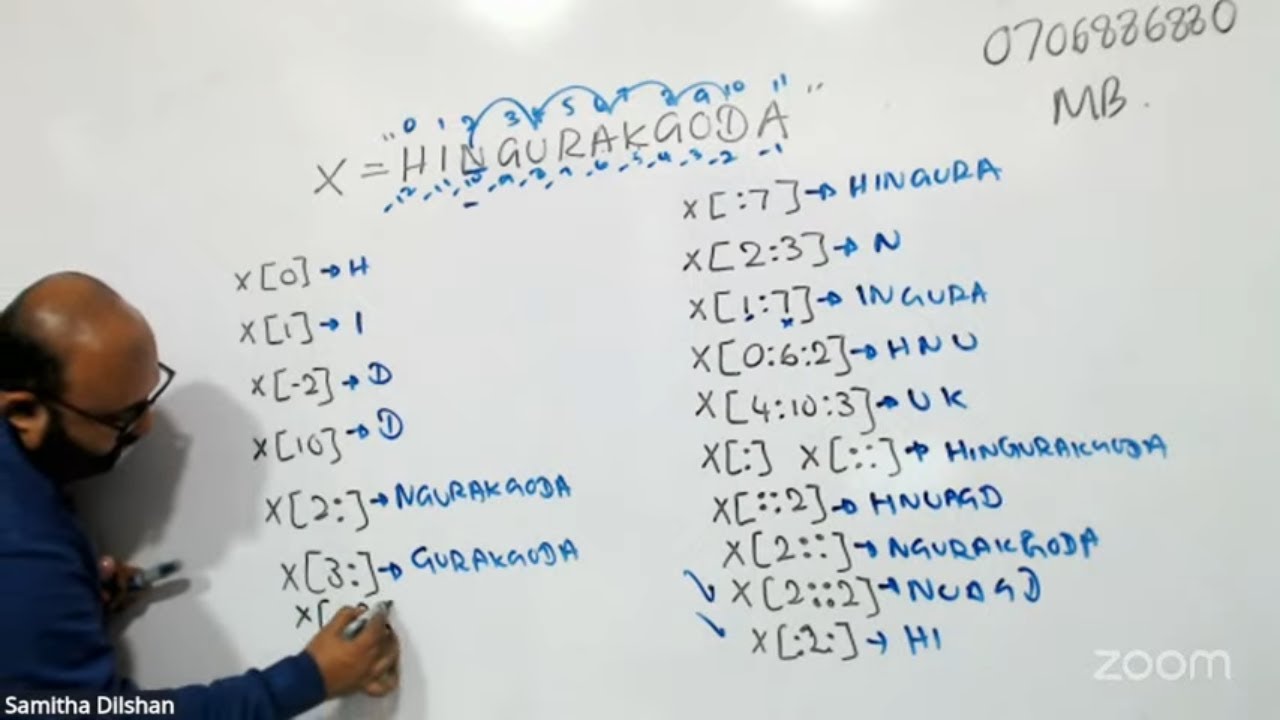 0706886880
MB.
0 1 2 3 5 6 7 8 9 10 11
X = "HINGURAKGODA"
-12 -11 -10 -9 -8 -7 -6 -5 -4 -3 -2 -1
X[0] → H
X[1] → I
X[-2] → D
X[10] → D
X[2:] → NGURAKGODA
X[3:] → GURAKGODA
X[
X[:7] → HINGURA
X[2:3] → N
X[1:7] → INGURA
X[0:6:2] → HNU
X[4:10:3] → UK
X[:] X[::] → HINGURAKGODA
X[::2] → HNUAGD
X[2::] → NGURAKGODA
X[2::2] → NUAGD
X[:2:] → HI
zoom
Samitha Dilshan